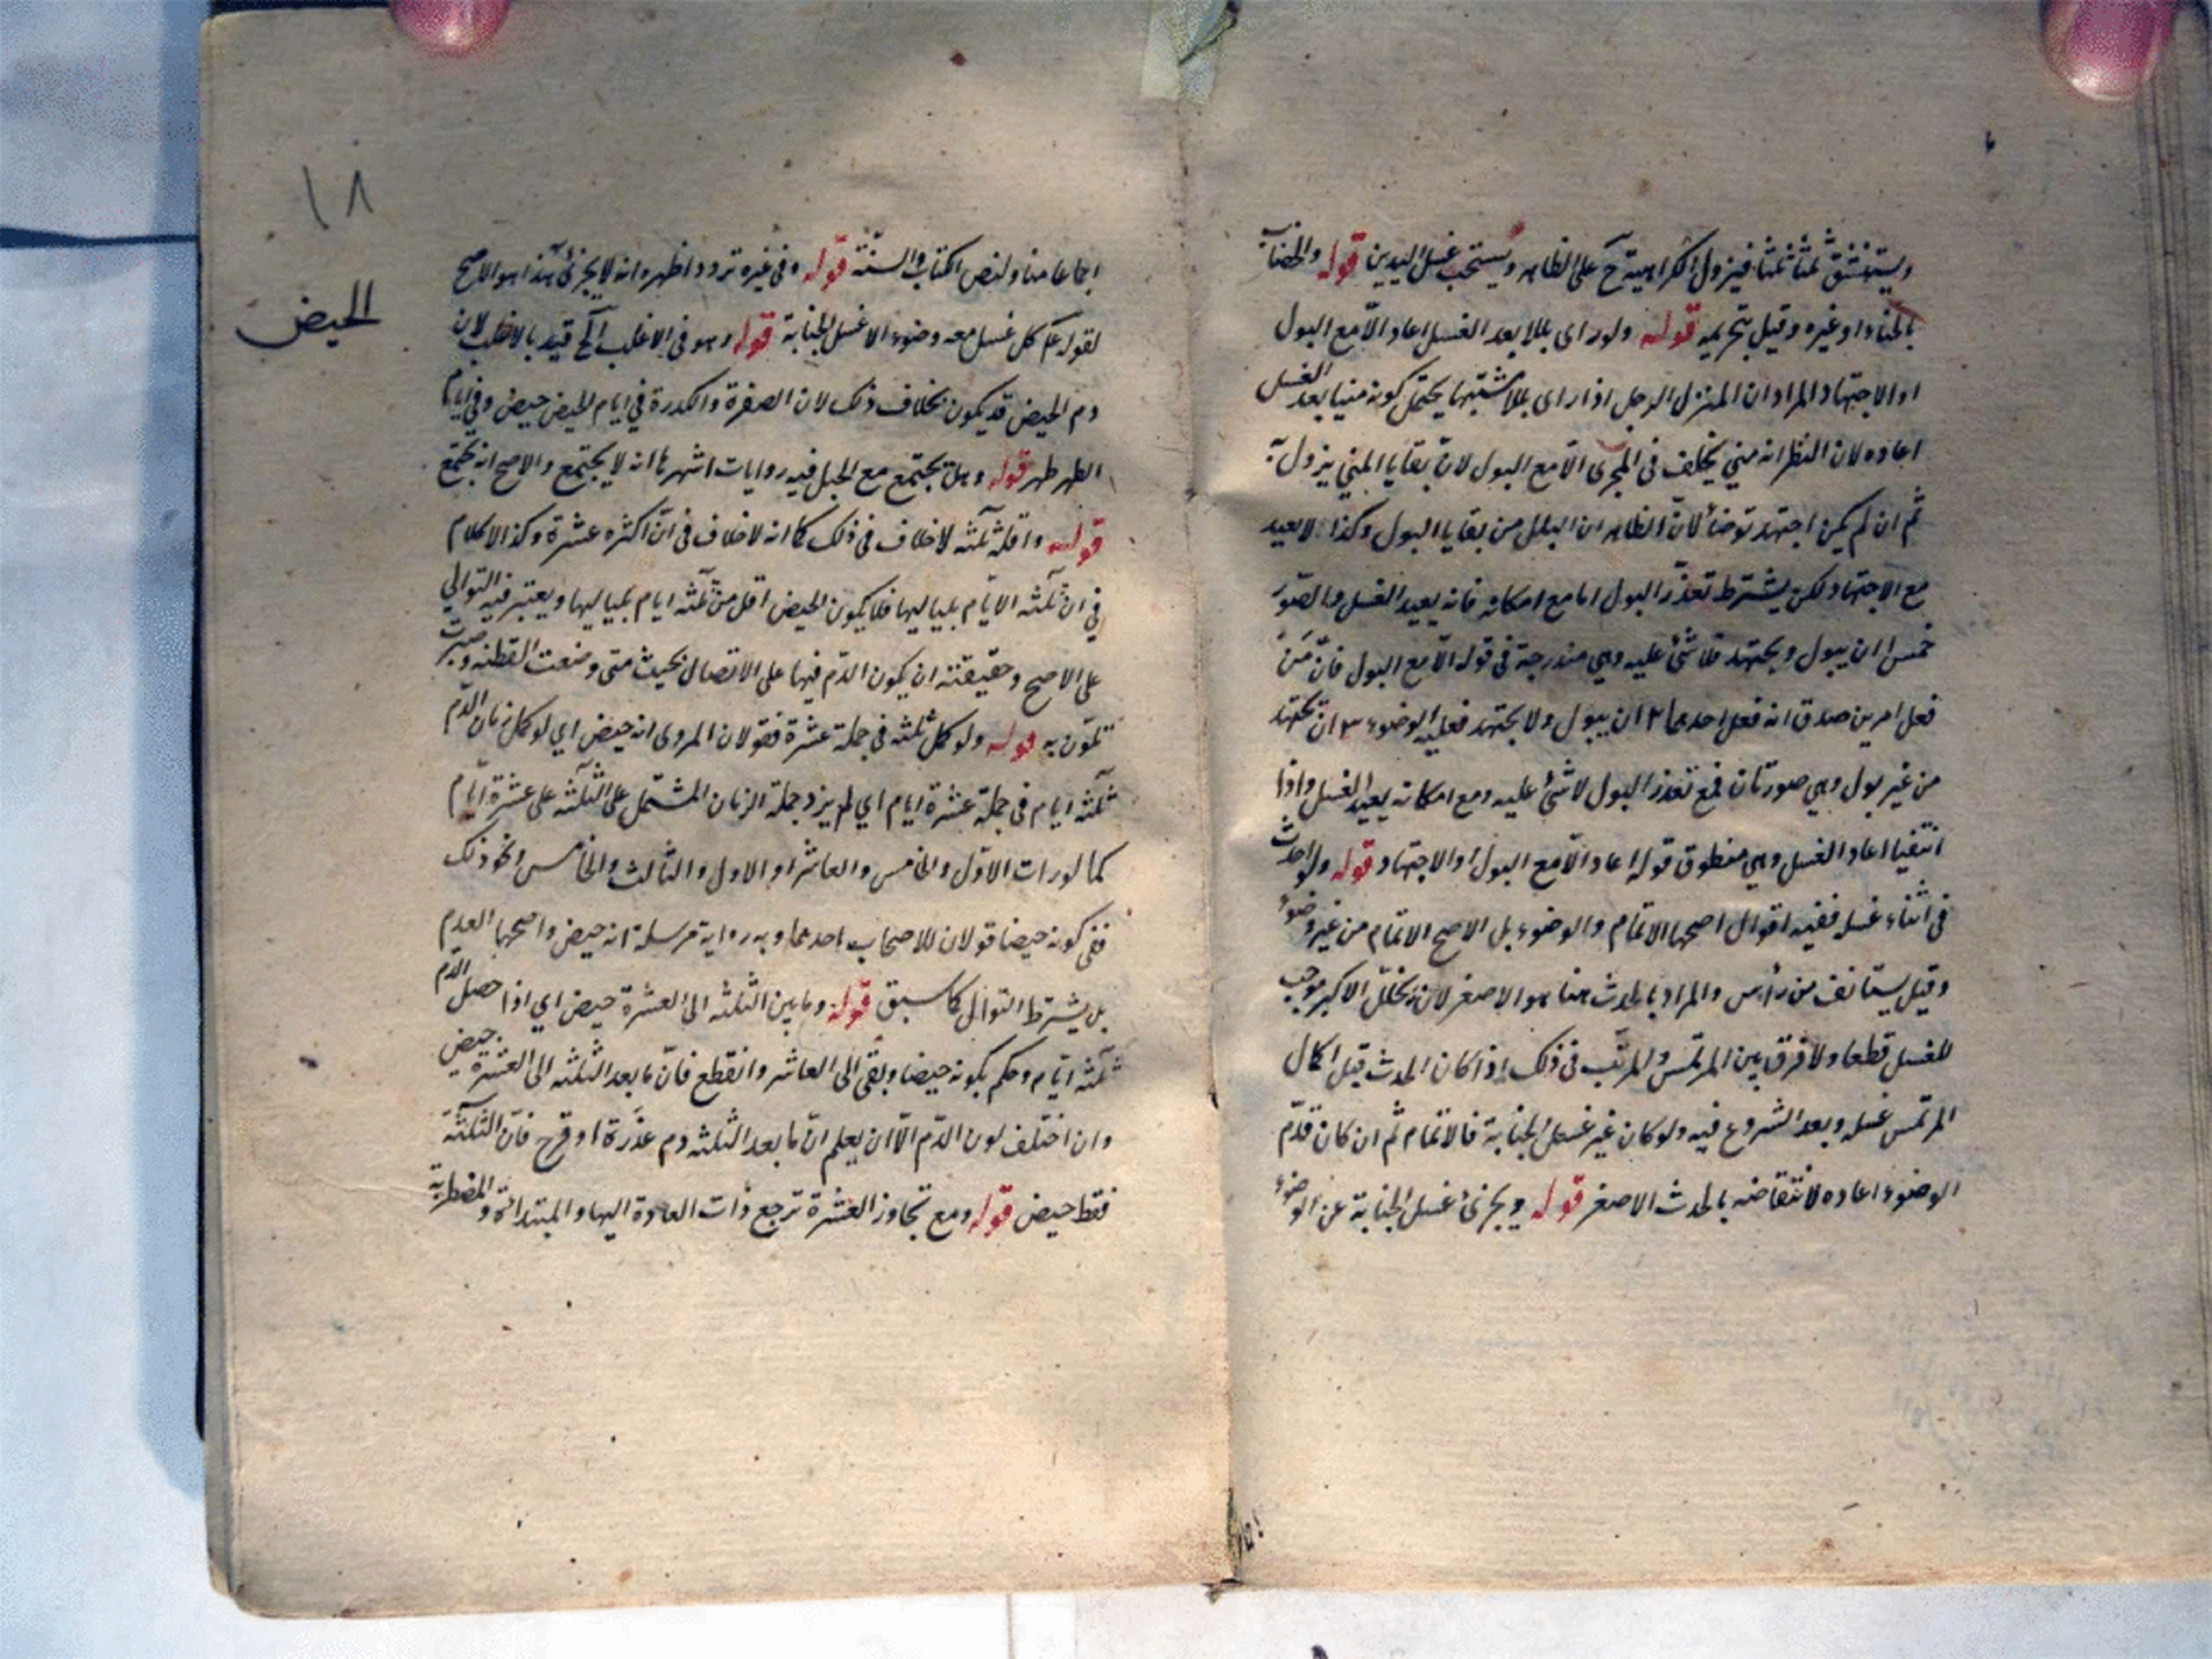 ويستنشق ثلثا ثلثا فيزول الكراهية ح على الظاهر ويستحب غسل اليدين قوله والخضاب
بالحناء او غيره وقيل بتحريمه قوله ولو راى بللا بعد الغسل اعاد الّا مع البول
او الاجتهاد المراد ان المنزل الرجل اذا راى بللا مشتبها يحتمل كونه منيا بعد الغسل
اعاده لان الظ انه مني تخلف في المجرى الّا مع البول لانّ بقايا المني يزول به
ثم ان لم يكن اجتهد توضأ لانّ الظاهر ان البلل من بقايا البول وكذا لا يعيد
مع الاجتهاد لكن يشترط تعذّر البول اما مع امكانه فانه يعيد الغسل والصّور
خمس ا ان يبول ويجتهد فلا شئ عليه وهي مندرجة في قوله الّا مع البول فانّ من
فعل امرين صدق انه فعل احدهما ٢ ان يبول ولا يجتهد فعليه الوضوء ٣ ان يجتهد
من غير بول وهي صورتان فمع تعذر البول لا شئ عليه ومع امكانه يعيد الغسل واذا
انتفيا اعاد الغسل وهي منطوق قوله اعاد الّا مع البول او الاجتهاد قوله ولو احدث
في اثناء غسله ففيه اقوال اصحها الاتمام والوضوء بل الاصح الاتمام من غير وضوء
وقيل يستانف من رأس والمراد بالحدث هنا هو الاصغر لان تخلل الاكبر موجب
للغسل قطعا ولا فرق بين المرتمس والمرتّب في ذلك اذا كان الحدث قبل اكمال
المرتمس غسله وبعد الشروع فيه ولو كان غير غسل الجنابة فالاتمام ثم ان كان قدّم
الوضوء اعاده لانتقاضه بالحدث الاصغر قوله ويجزئ غسل الجنابة عن الوضوء
١٨
الحيض
اجماعا منا ولنص الكتاب والسنّة قوله وفي غيره تردد اظهره انه لا يجزئ هذا هو الاصح
لقوله ع كل غسل معه وضوء الا غسل الجنابة قوله وهو في الاغلب الخ قيد بالاغلب لان
دم الحيض قد يكون بخلاف ذلك لان الصفرة والكدرة في ايام الحيض حيض وفي ايام
الطهر طهر قوله وهل يجتمع مع الحبل فيه روايات اشهرها انه لا يجتمع والاصح انه يجتمع
قوله واقله ثلثه لا خلاف في ذلك كما انه لا خلاف في انّ اكثره عشرة وكذا لا كلام
في ان ثلثه الايّام بلياليها فلا يكون الحيض اقل من ثلثه ايام بلياليها ويعتبر فيه التوالي
على الاصح وحقيقته ان يكون الدّم فيها على الاتصال بحيث متى وضعت القطنه وصبرت
تلوّث به قوله ولو كمل ثلثه في جملة عشرة فقولان المروى انه حيض اي لو كمل زمان الدّم
ثلثه ايام في جملة عشرة ايام اي لم يزد جملة الزمان المشتمل على الثلثه على عشرة ايّام
كما لو رات الاوّل والخامس والعاشر او الاول والثالث والخامس ونحو ذلك
ففي كونه حيضا قولان للاصحاب احدهما وبه رواية مرسلة انه حيض واصحها العدم
بل يشترط التوالى كما سبق قوله وما بين الثلثه الى العشرة حيض اي اذا حصل الدّم
ثلثه ايّام وحكم بكونه حيضا وبقى الى العاشر وانقطع فانّ ما بعد الثلثه الى العشرة حيض
وان اختلف لون الدّم الّا ان يعلم انّ ما بعد الثلثه دم عذرة او قرح فانّ الثلثة
فقط حيض قوله ومع تجاوز العشرة ترجع ذات العادة اليها والمبتدائة والمضطربة